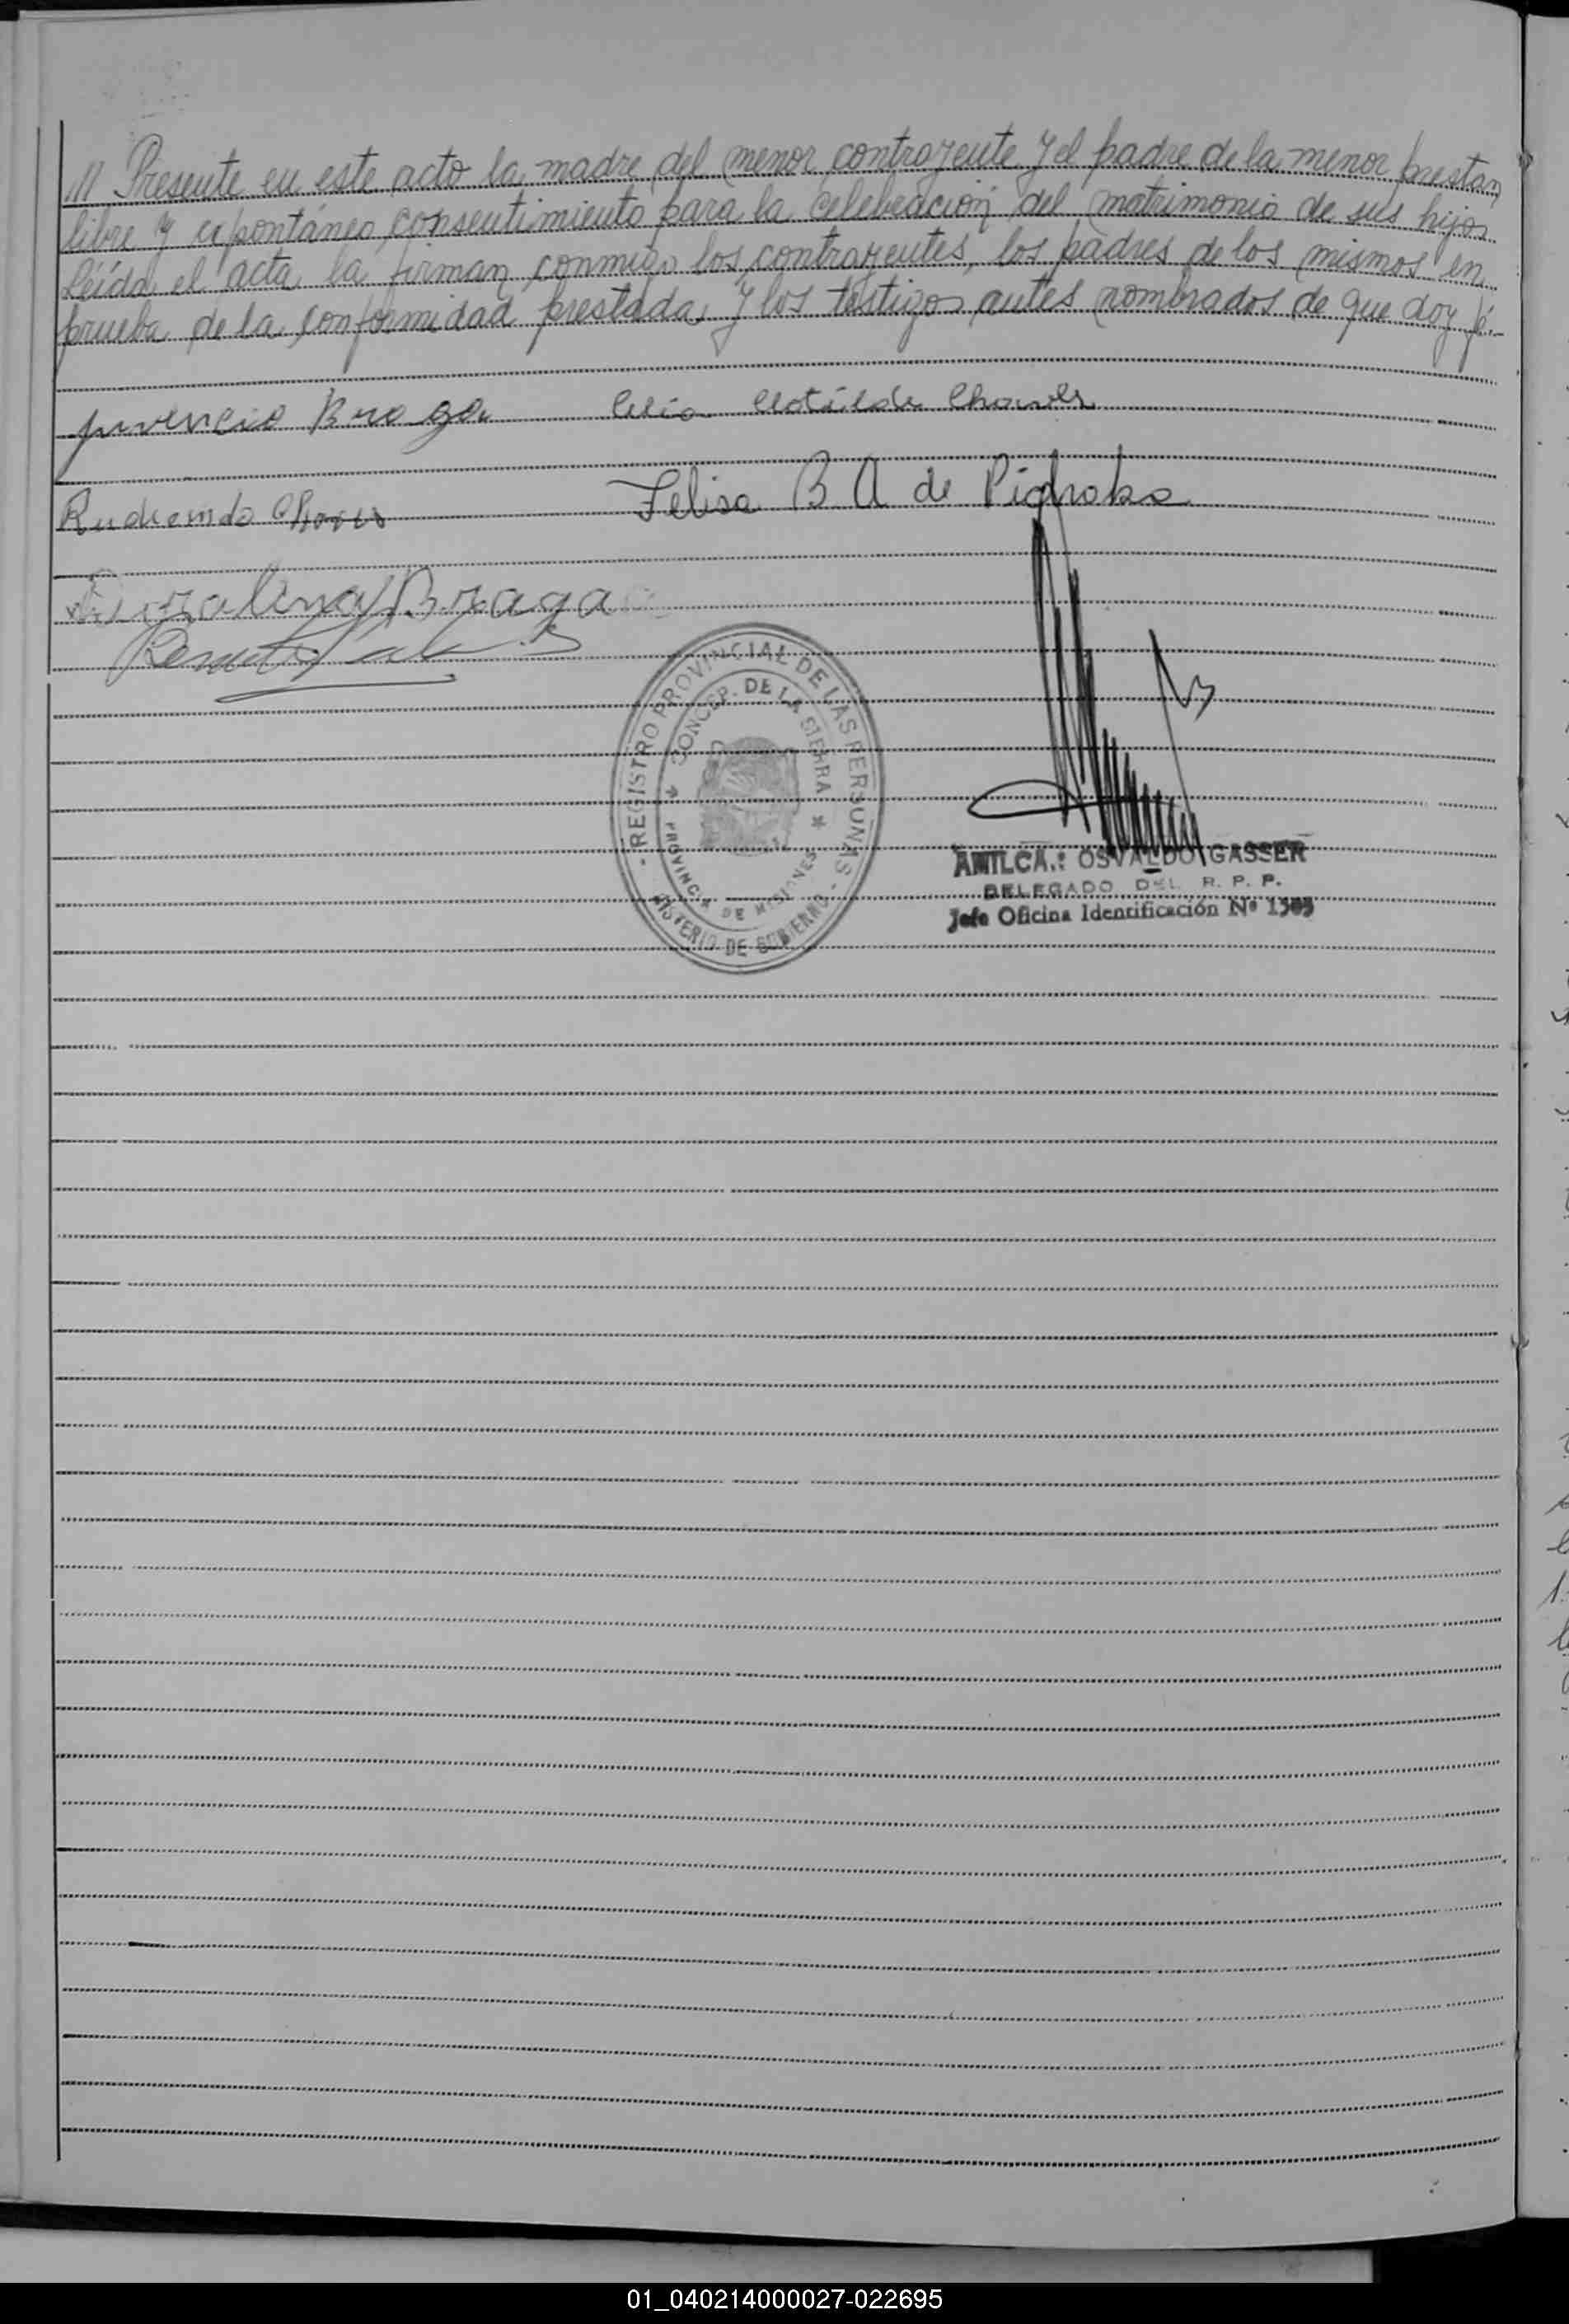 /// Presente en este acto la madre del menor contrayente y el padre de la menor prestan
libre y espontáneo consentimiento para la celebración del matrimonio de sus hijos.
Leída el acta la firman conmigo los contrayentes, los padres de los mismos en
prueba de la conformidad prestada y los testigos antes nombrados de que doy fé.-
Juvencio Braga Celia Clotilde Chaves
Felisa B A de Pidraka
Rudicindo Chaves
Braga
- REGISTRO PROVINCIAL DE LAS PERSONAS -
CONCEP. DE LA SIERRA
PROVINCIA DE MISIONES
MINISTERIO DE GOBIERNO
AMILCAR OSVALDO GASSER
DELEGADO DEL R. P. P.
Jefe Oficina Identificación Nº 1505
01_040214000027-022695